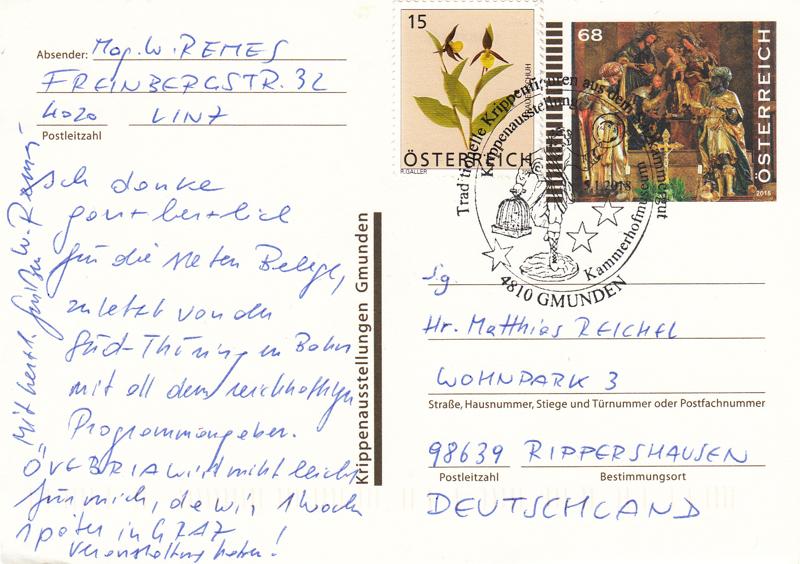 Absender: Mag. W. REMES
FREINBERGSTR. 32
4020 LINZ
Postleitzahl
Ich danke
ganz herzlich
für die steten Belege,
zuletzt von der
Süd-Thüringen Bahn
mit all dem reichhaltigen
Programmangeber.
ÖVEBRIA wird nicht leicht
für mich, da wir 1 Woche
später in GRAZ
Veranstaltung haben!
Mit herzl. Grüßen W. Remes
Krippenausstellungen Gmunden
15
FRAUENSCHUH
ÖSTERREICH
R. GALLER
68
ÖSTERREICH
2018
Traditionelle Krippenfiguren aus dem Salzkammergut
Krippenausstellung
Kammerhofmuseum
2018
4810 GMUNDEN
Sg.
Hr. Matthias REICHEL
WOHNPARK 3
Straße, Hausnummer, Stiege und Türnummer oder Postfachnummer
98639 RIPPERSHAUSEN
Postleitzahl Bestimmungsort
DEUTSCHLAND